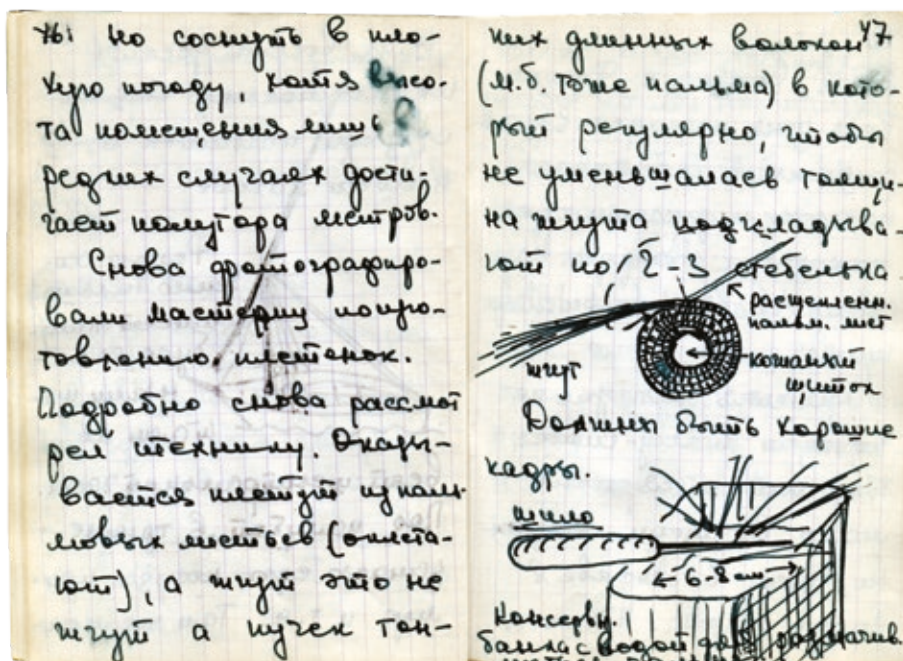 46. но соснуть в пло-
хую погоду, хотя высо-
та помещения лишь в
редких случаях дости-
гает полутора метров.
Снова фотографиро-
вали мастерицу по изго-
товлению плетенок.
Подробно снова рассмот
рел технику. Оказы-
вается плетут из паль
мовых листьев (оплета-
ют), а жгут это не
жгут а пучек тон-
47
ких длинных волокон
(м.б. тоже пальма) в кото-
рый регулярно, чтобы
не уменьшалась толщи-
на жгута подкладыва-
ют по 2-3 стебелька.
расщепленн.
пальм. лист
жгут
кожаный
щиток
Должны быть хорошие
кадры.
шило
6-8 см
Консервн.
банка с водой для размачив.